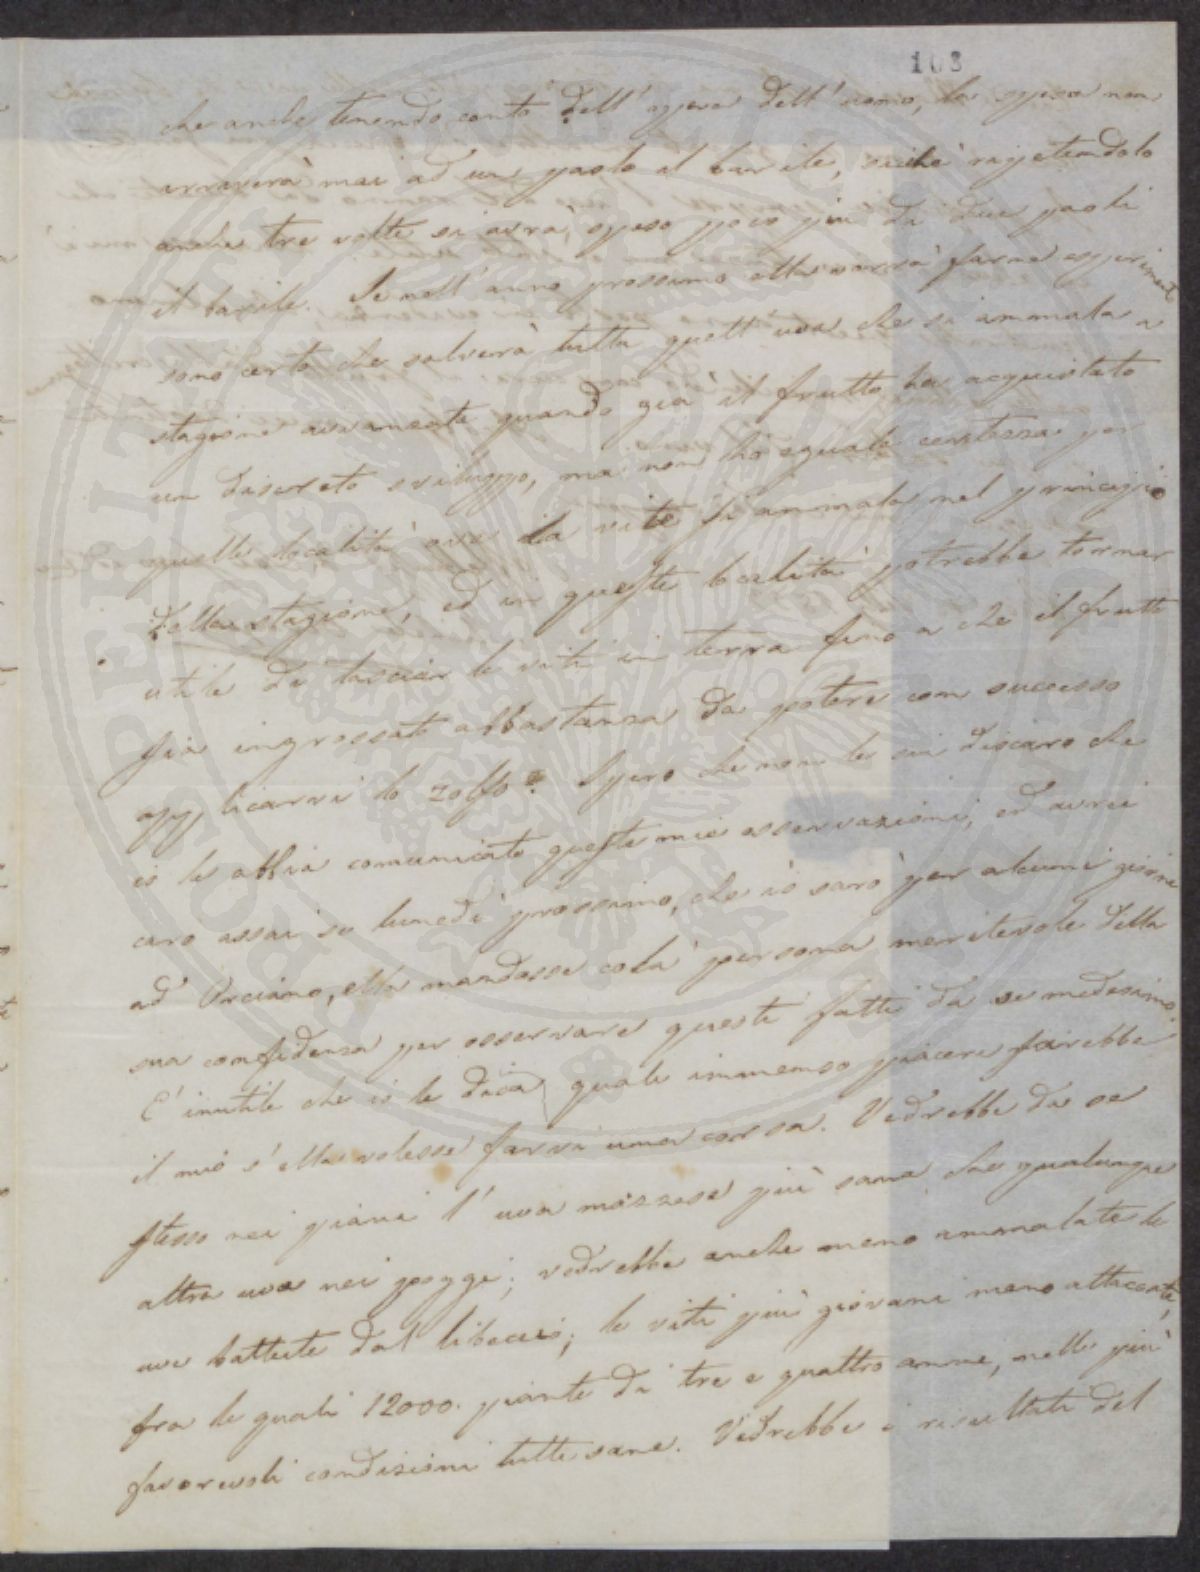 103
che anche tenendo conto dell'opera dell'uomo, la spesa non
arriverà mai ad un paolo il barile, sicchè ripetendolo
anche tre volte si avrà speso poco più di due paoli
il barile. Se nell'anno prossimo ella vorrà farne esperimento
sono certo che salverà tutta quell'uva che si ammala a
stagione avanzata quando già il frutto ha acquistato
un discreto sviluppo, ma non ho eguale certezza per
quelle località ove la vite si ammala nel principio
della stagione, ed in queste località potrebbe tornar
utile di lasciar le viti in terra fino a che il frutto
sia ingrossato abbastanza da potere con successo
applicarvi lo zolfo. Spero che non le sia discaro che
io le abbia comunicato queste mie osservazioni, ed avrei
caro assai se lunedì prossimo, che io sarò per alcuni giorni
ad Orciano, ella mandasse colà persona meritevole della
sua confidenza per osservare questi fatti da se medesimo.
E' inutile che io le dica quale immenso piacere sarebbe
il mio s'ella volesse farvi una corsa. Vedrebbe da se
stesso nei piani l'uva mazzese più sana che qualunque
altra uva nei poggi; vedrebbe anche meno ammalate le
uve battute dal libeccio; le viti più giovani meno attaccate,
fra le quali 12000. piante di tre e quattro anni, nelle più
favorevoli condizioni tutte sane. Vedrebbe i risultati del
PROSPERITATI PUBLICAE